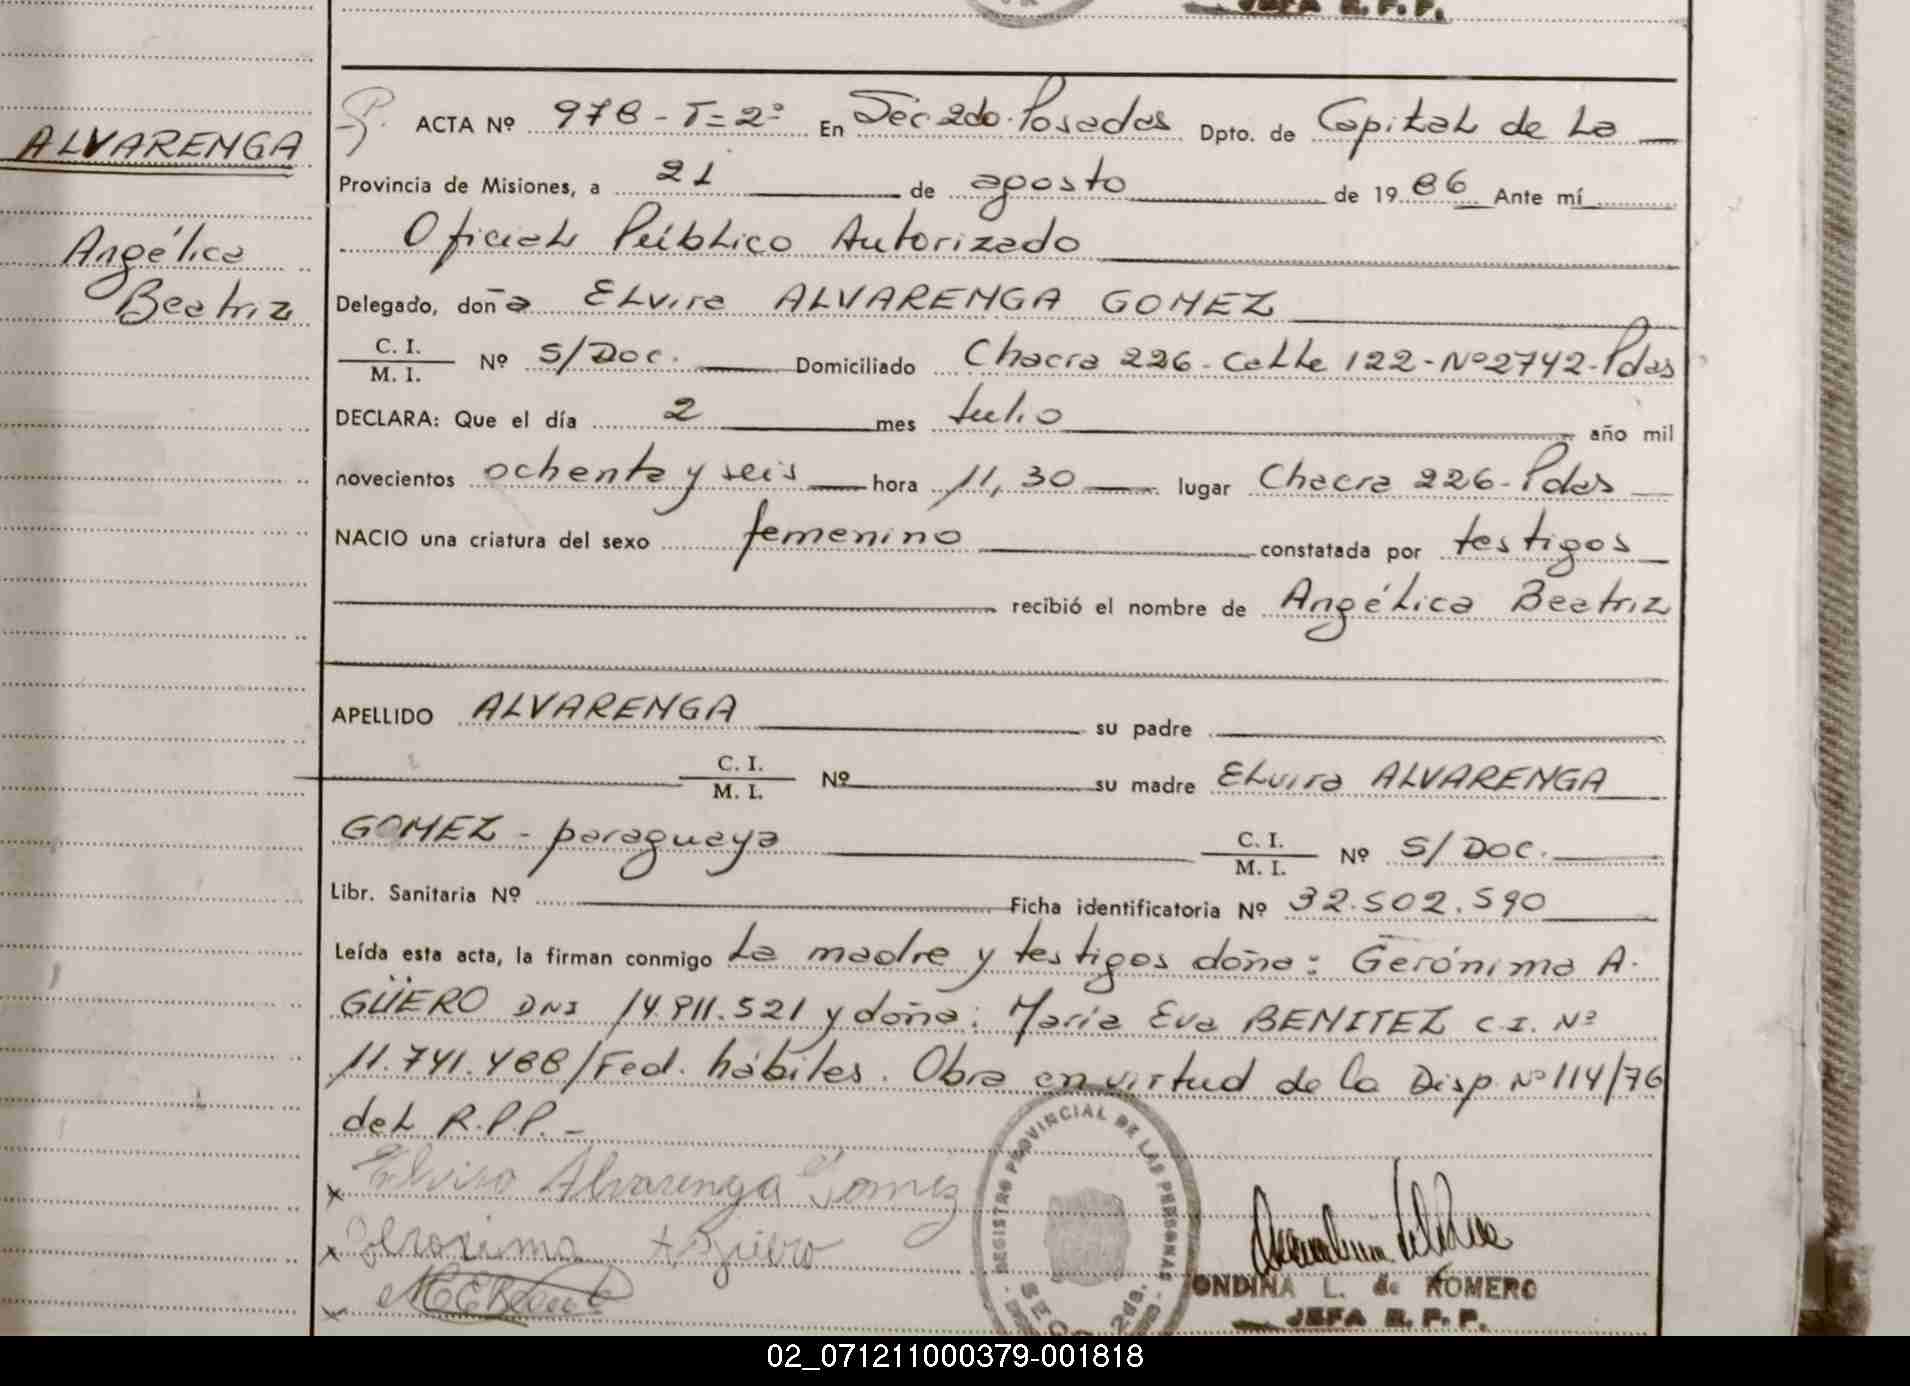 JEFA R. P. P.
ALVARENGA
Angélica
Beatriz
ACTA Nº 978 - T=2º En Sec 2do. Posadas Dpto. de Capital de La
Provincia de Misiones, a 21 de agosto de 1986 Ante mí
Oficial Público Autorizado
Delegado, doña Elvira ALVARENGA GOMEZ
C. I.
M. I. Nº S/Doc. Domiciliado Chacra 226 - Calle 122 - Nº 2742 - Pdas
DECLARA: Que el día 2 mes Julio año mil
novecientos ochenta y seis hora 11,30 lugar Chacra 226 - Pdas
NACIO una criatura del sexo femenino constatada por testigos
recibió el nombre de Angélica Beatriz
APELLIDO ALVARENGA su padre
C. I.
M. I. Nº su madre Elvira ALVARENGA
GOMEZ - paraguaya C. I.
M. I. Nº S/DOC.
Libr. Sanitaria Nº Ficha identificatoria Nº 32.502.590
Leída esta acta, la firman conmigo La madre y testigos doña: Gerónima A.
GÜERO DNI 14.911.521 y doña: María Eva BENITEZ C.I. Nº
11.741.488/Fed. hábiles. Obra en virtud de la Disp. Nº 114/76
del R.P.P. -
x Elvira Alvarenga Gomez
x Geronima Agüero
REGISTRO PROVINCIAL DE LAS PERSONAS
SECC. 2da.
ONDINA L. de ROMERO
JEFA R. P. P.
02_071211000379-001818